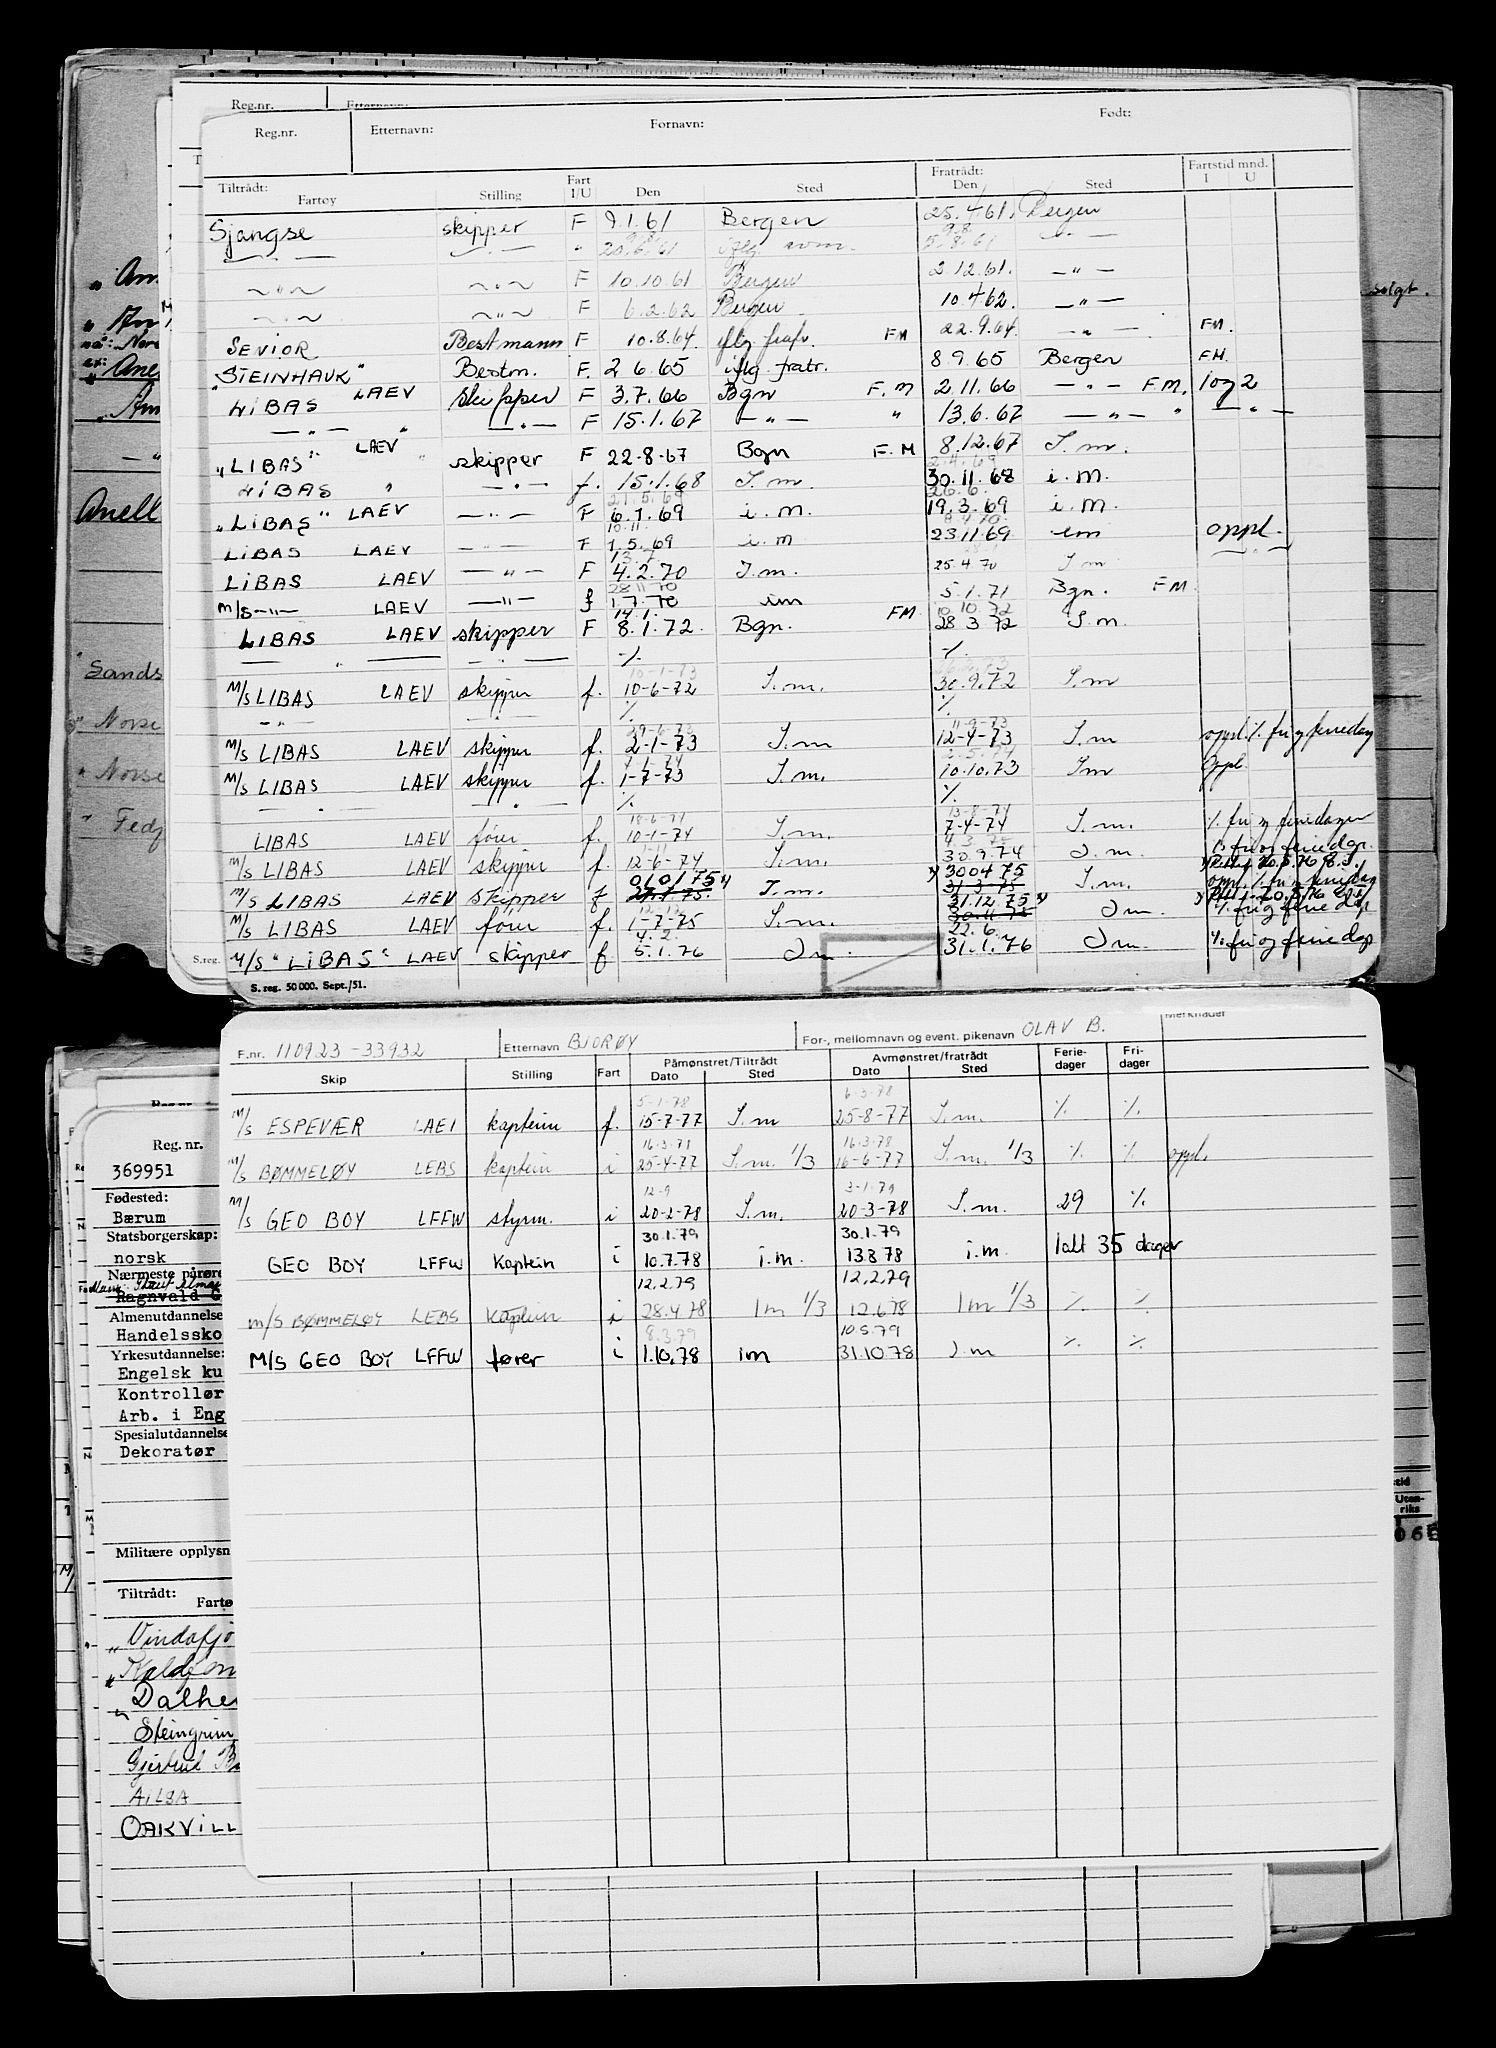 Reg.nr. Etternavn:
Reg.nr. Etternavn: Fornavn: Født:
Tiltrådt: Fartøy Stilling Fart I/U Den Sted Fratrådt: Den Sted Fartstid mnd. I U
Sjangse skipper F 9.1.61 Bergen 25.4.61. Bergen
— " — — " — " 20.6.61 5.8.61 — " —
— " — — " — F 10.10.61 Bergen 2.12.61. — " —
— " — — " — F 6.2.62 Bergen 10.4.62. — " —
SENIOR Bestmann F 10.8.64. iflg. fratr. FM 22.9.64. — " — FM.
"STEINHAUK" Bestm. F. 2 6.65 iflg. fratr. 8 9.65 Bergen FM.
LIBAS LAEV skipper F 3.7.66 Bgn F.M 2.11.66 — " — F.M. 1 og 2
— " — " — " — F 15.1.67 — " — " 13.6.67 — " — " — " —
"LIBAS" LAEV skipper F 22-8-67 Bgn F.M 8.12.67 I.m.
LIBAS " — " — f. 15.1.68 I.m. 30.11.68 i.M.
"LIBAS" LAEV — " — F 6.1.69 i.M. 19.3.69 i.M.
LIBAS LAEV — " — F 1.5.69 i.m 23.11.69 im oppl.
LIBAS LAEV — " — F 4.2.70 I.m. 25.4.70 I m — " —
M/S — " — LAEV — " — f 1.7.70 im 5.1.71 Bgn. FM.
LIBAS LAEV skipper F 8.1.72. Bgn. FM 28 3 72 I.m.
— " — — " — % %
M/S LIBAS LAEV skipper f. 10-6-72 I.m. 30.9.72 I.m
— " — — " — % %
M/S LIBAS LAEV skipper f. 2-1-73 I.m 12-4-73 I.m oppl. % fri og feriedag
M/S LIBAS LAEV skipper f. 1-7-73 I.m. 10.10.73 Im oppl.
— " — — " — % %
LIBAS LAEV fører f. 10-1-74 I.m. 7-4-74 I.m. % fri og feriedager
M/S LIBAS LAEV skipper f. 12-6-74 I.m. 30 9.74 I.m. % fri og ferie dgr.
010175 x) x) 300475
M/S LIBAS LAEV skipper f I.m. 31-3-75 I.m. oppl. % fri og feriedag
31.12.75 x)
M/S LIBAS LAEV fører f. 1-7-75 I.m. 30.11.75 I m. % fri og ferie dgr
M/S "LIBAS" LAEV skipper f 5.1.76 I m. 31.1.76 I m. % fri og ferie dgr
S.reg. S. reg. 50 000. Sept./51.
solgt.
Anell
Sands
Norse
Norse
Fedj
F.nr. 110923-33932 Etternavn BJORØY For-, mellomnavn og event. pikenavn OLAV B. Merknader
Skip Stilling Fart Påmønstret/Tiltrådt Dato Sted Avmønstret/fratrådt Dato Sted Ferie-dager Fri-dager
5-1-78 6-3-78
M/S ESPEVÆR LAEI kaptein f. 15-7-77 I.m 25-8-77 I.m. % %
16-3-78 16-3-78
M/S BØMMELØY LEBS kaptein i 25-4-77 I.m. 1/3 16-6-77 I.m. 1/3 % % oppl.
12-9 3-1-79
M/S GEO BOY LFFW styrm. i 20-2-78 I.m. 20-3-78 I.m. 29 %
30.1.79 30.1.79
GEO BOY LFFW Kaptein i 10.7.78 i.m. 13.8.78 i.m. Ialt 35 dager
12.2.79 12.2.79
M/S BØMMELØY LEBS kaptein i 28.4.78 Im 1/3 12.6.78 Im 1/3 % %
8.3.79 10.5.79
M/S GEO BOY LFFW fører i 1.10.78 im 31.10.78 I m % %
Reg. nr.
369951
Fødested:
Bærum
Statsborgerskap:
norsk
Nærmeste pårøre
Ragnvald G
Almenutdannelse
Handelssko
Yrkesutdannelse:
Engelsk ku
Kontrollør
Arb. i Eng
Spesialutdannelse
Dekoratør
Militære opplysn
Tiltrådt: Fartø
"Vindafjo
Dalhe
Steingrim
Gjertrud B
AILSA
OAKVILL
Uten-riks